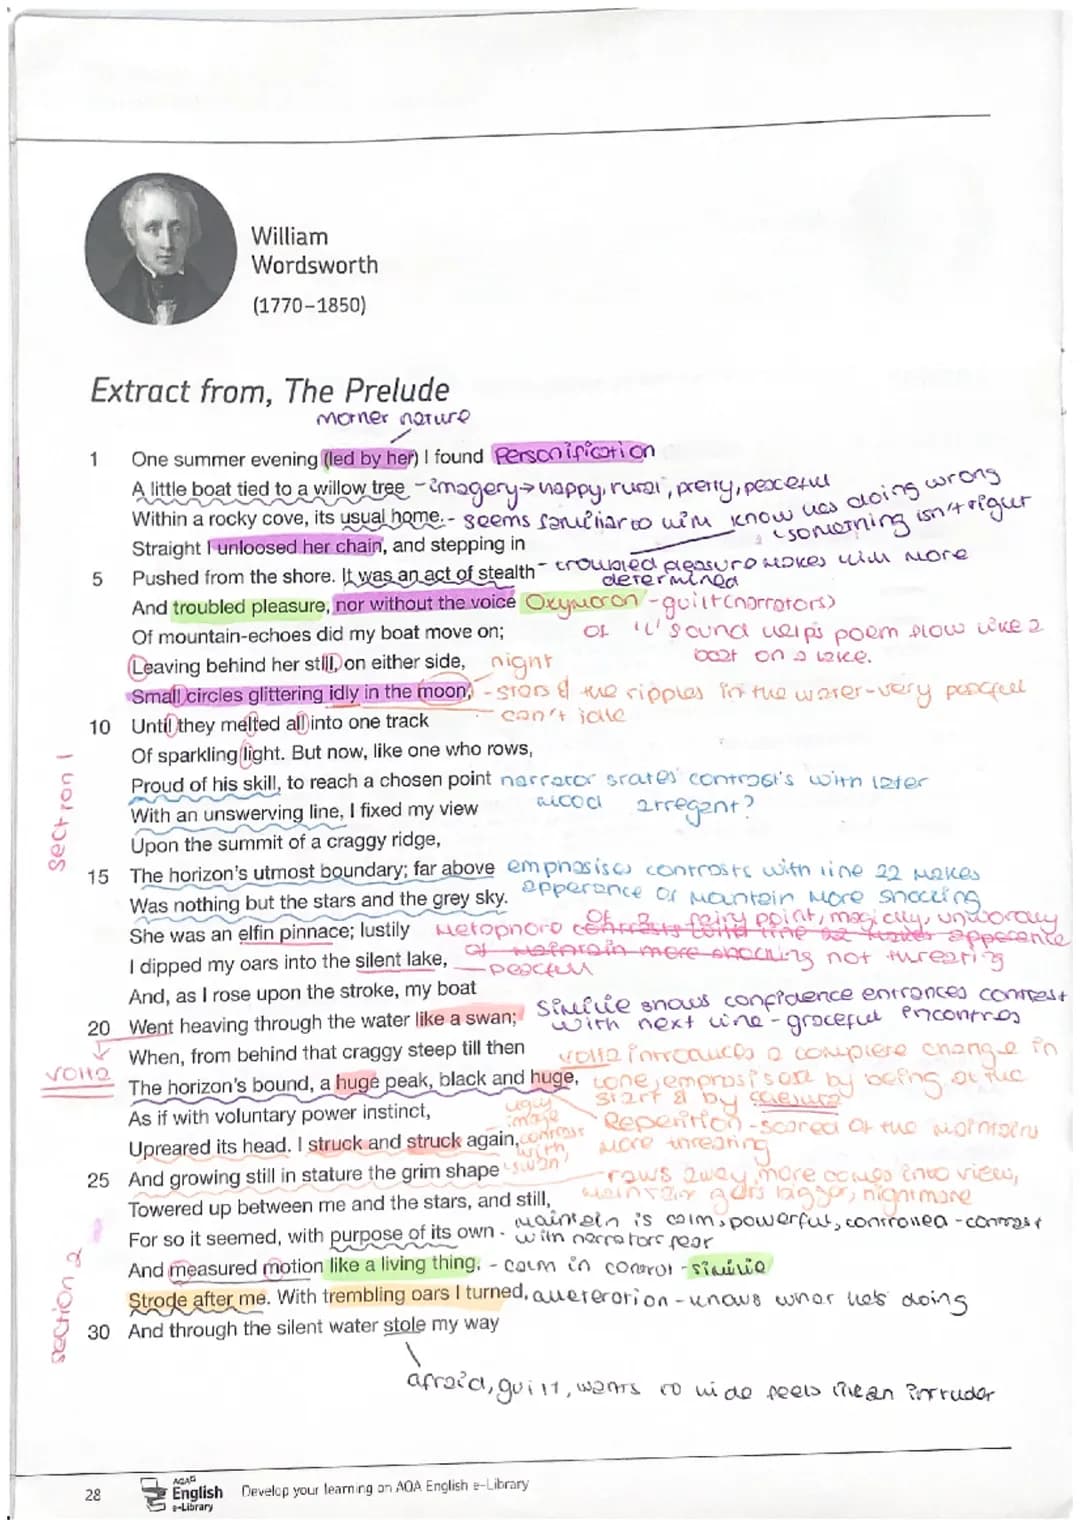 William
Wordsworth
(1770–1850)
Extract from, The Prelude
mother nature
1 One summer evening (led by her) I found Personification
A little boat tied to a willow tree - imagery → happy, rural, pretty, peaceful
Within a rocky cove, its usual home. - seems familiar to him know hes doing wrong
something isn't right
Straight I unloosed her chain, and stepping in
5 Pushed from the shore. It was an act of stealth - troubled pleasure makes him more
determined
And troubled pleasure, nor without the voice Oxymoron - guilt (narrators)
Of mountain-echoes did my boat move on; of 'L' sound helps poem flow like a
boat on a lake.
Leaving behind her still, on either side, night
Small circles glittering idly in the moon, - stars & the ripples in the water - very peaceful
can't idle
10 Until they melted all into one track
Of sparkling light. But now, like one who rows,
Proud of his skill, to reach a chosen point narrator states contrast's with later
mood arregent?
With an unswerving line, I fixed my view
Upon the summit of a craggy ridge,
section 1
15 The horizon's utmost boundary; far above emphasises contrasts with line 22 makes
Was nothing but the stars and the grey sky. apperance of mantain more shocking
She was an elfin pinnace; lustily Metophore of a fairy point, magiclly, unworldly
contrasts with line 22 makes apperence
of more shocking not threating
I dipped my oars into the silent lake, - peacful
And, as I rose upon the stroke, my boat
20 Went heaving through the water like a swan; Similie shows confidence entrances contrest
with next line - graceful encontros
volta
When, from behind that craggy steep till then volta introduces a complete change in
The horizon's bound, a huge peak, black and huge, tone, emphasised by being at the
start & by caesura
As if with voluntary power instinct, ugly
image
contrast
with
'swan'
Repenition - scared of the mointain
more threating
Upreared its head. I struck and struck again,
25 And growing still in stature the grim shape rows away more comes into view,
Towered up between me and the stars, and still, gets bigger, nightmare
For so it seemed, with purpose of its own - maintain is calm, powerful, controlled - contrast
with narrators fear
And measured motion like a living thing, - calm in control - similie
section 2
Strode after me. With trembling oars I turned, - knows what he's doing
30 And through the silent water stole my way
afraid, guilt, wants to hide feels like an intruder
28
AQA
English
e-Library
Develop your learning on AQA English e-Library